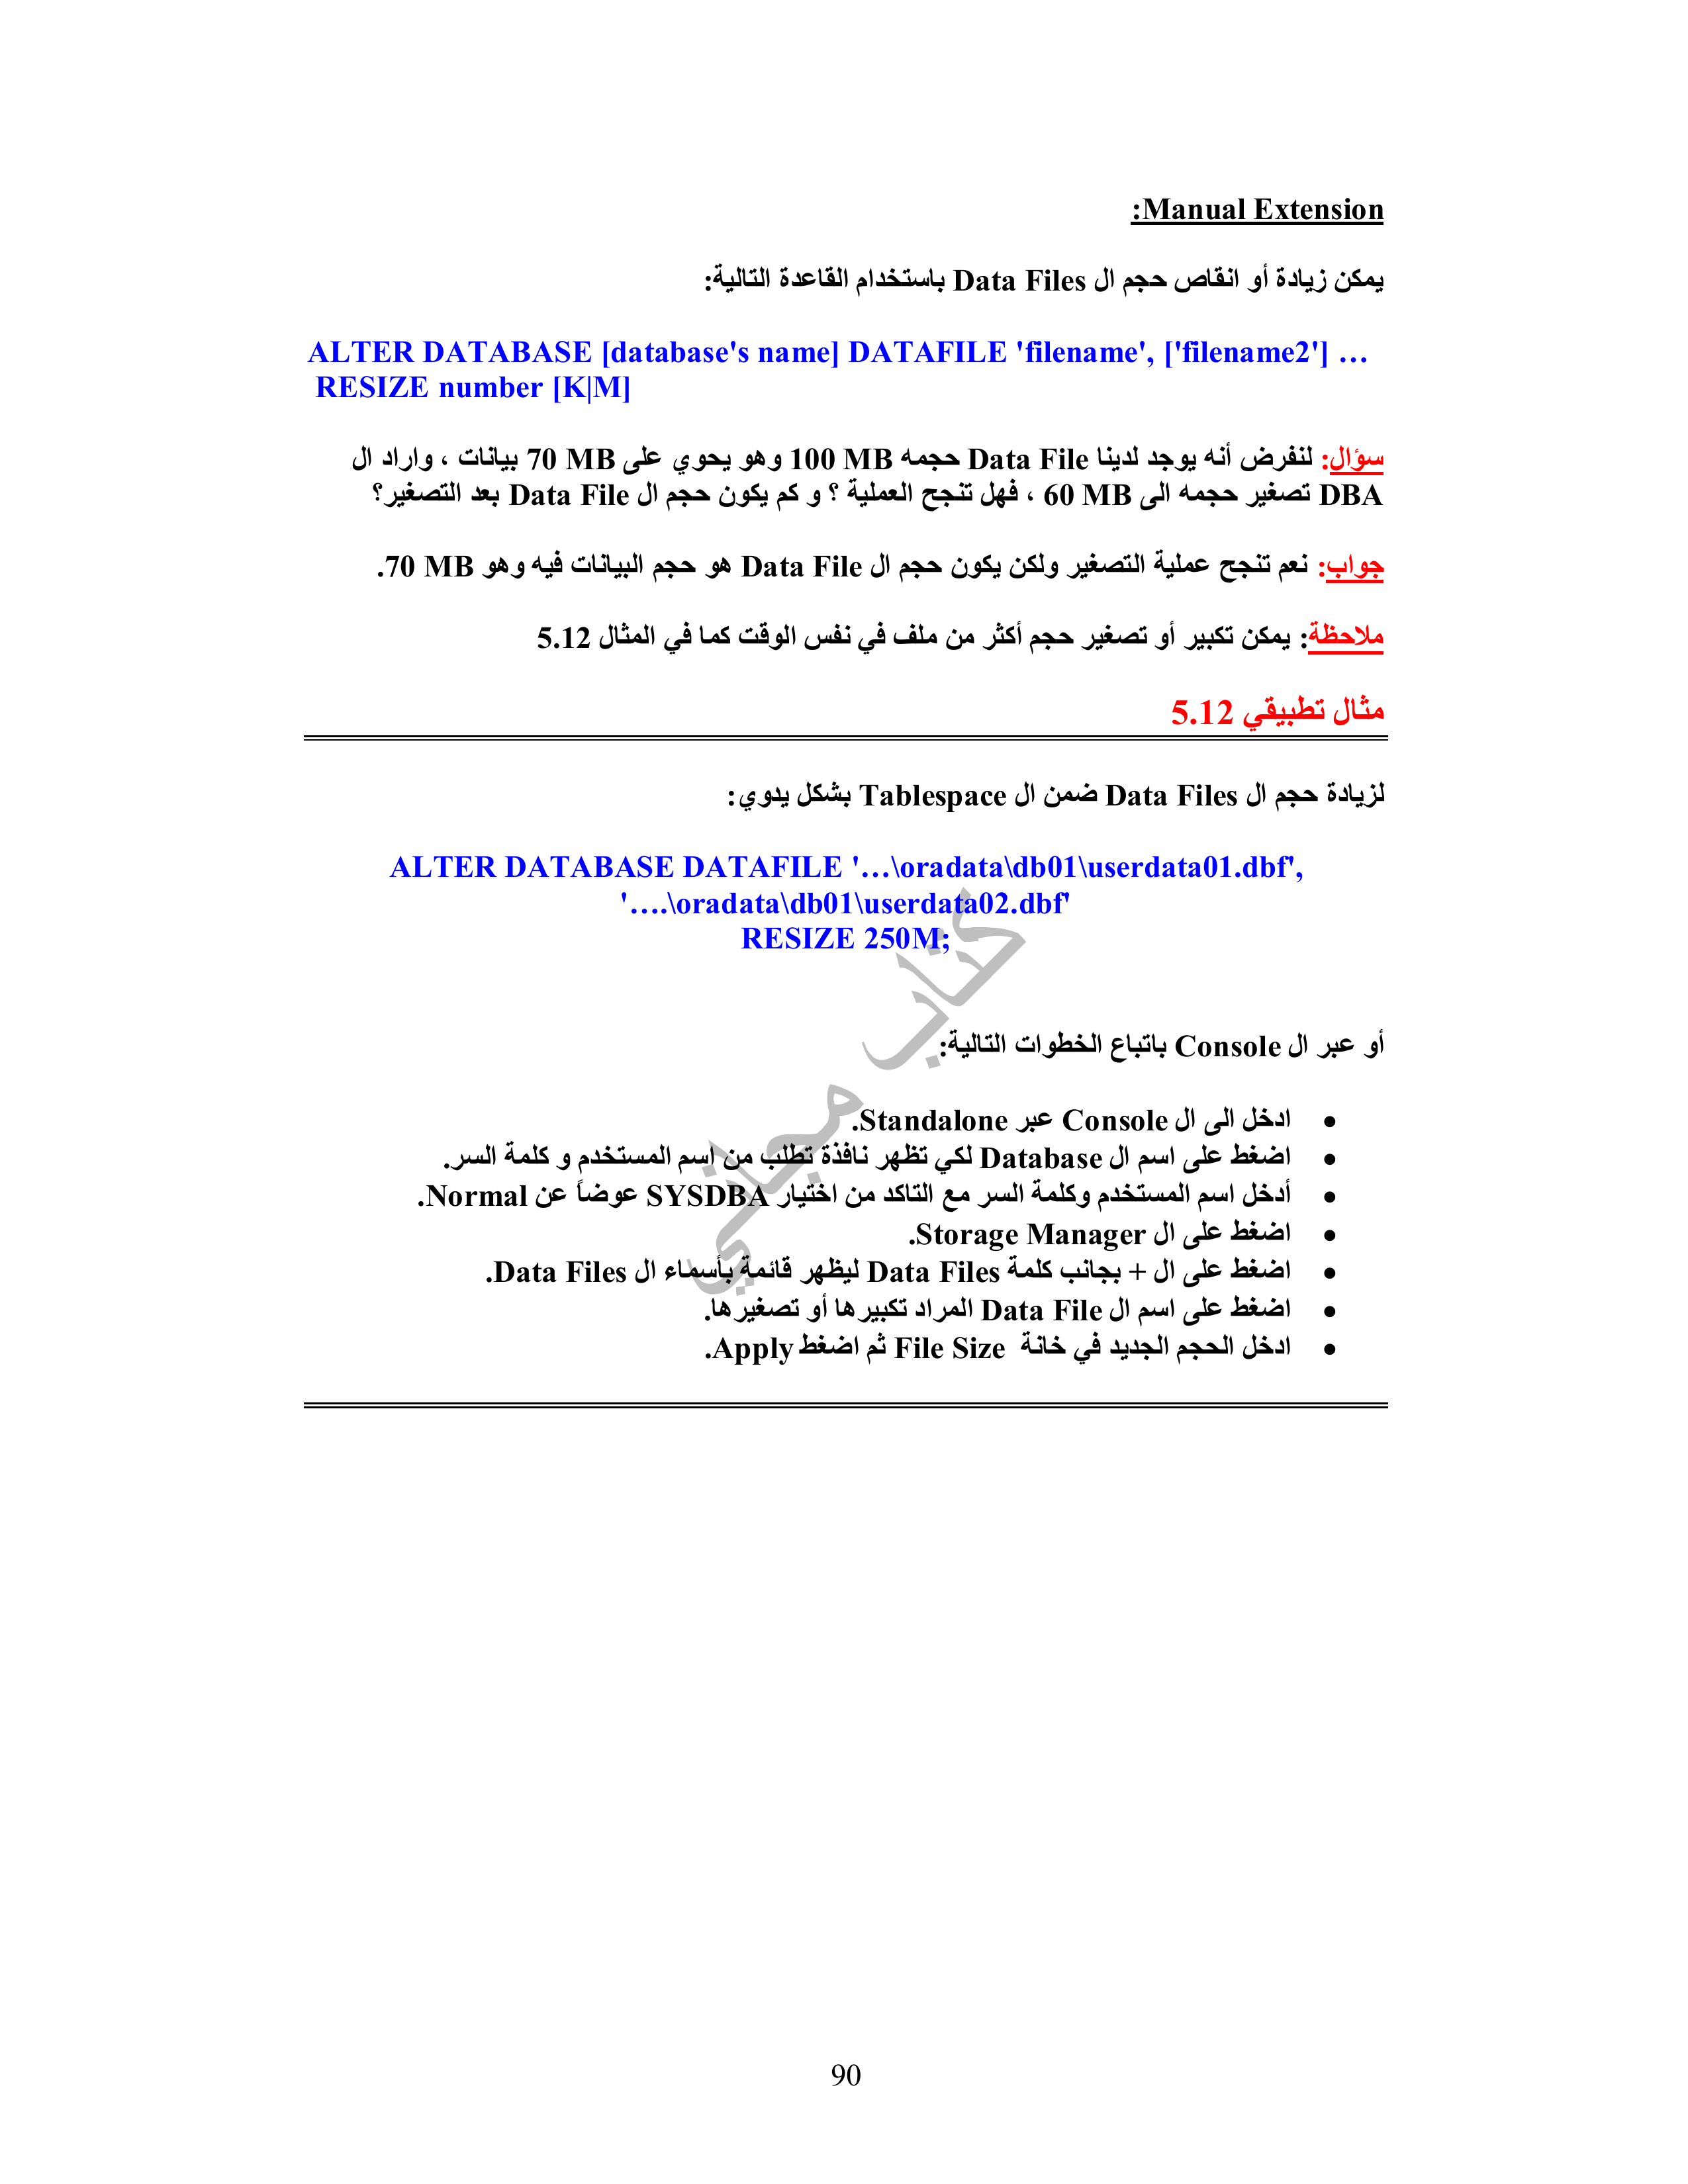 Manual Extension:
يمكن زيادة أو انقاص حجم ال Data Files باستخدام القاعدة التالية:
ALTER DATABASE [database's name] DATAFILE 'filename', ['filename2'] …
RESIZE number [K|M]
سؤال: لنفرض أنه يوجد لدينا Data File حجمه 100 MB وهو يحوي على 70 MB بيانات ، واراد ال
DBA تصغير حجمه الى 60 MB ، فهل تنجح العملية ؟ و كم يكون حجم ال Data File بعد التصغير؟
جواب: نعم تنجح عملية التصغير ولكن يكون حجم ال Data File هو حجم البيانات فيه وهو 70 MB.
ملاحظة: يمكن تكبير أو تصغير حجم أكثر من ملف في نفس الوقت كما في المثال 5.12
مثال تطبيقي 5.12
لزيادة حجم ال Data Files ضمن ال Tablespace بشكل يدوي:
ALTER DATABASE DATAFILE '…\oradata\db01\userdata01.dbf',
'….\oradata\db01\userdata02.dbf'
RESIZE 250M;
أو عبر ال Console باتباع الخطوات التالية:
• ادخل الى ال Console عبر Standalone.
• اضغط على اسم ال Database لكي تظهر نافذة تطلب من اسم المستخدم و كلمة السر.
• أدخل اسم المستخدم وكلمة السر مع التاكد من اختيار SYSDBA عوضاً عن Normal.
• اضغط على ال Storage Manager.
• اضغط على ال + بجانب كلمة Data Files ليظهر قائمة بأسماء ال Data Files.
• اضغط على اسم ال Data File المراد تكبيرها أو تصغيرها.
• ادخل الحجم الجديد في خانة File Size ثم اضغط Apply.
كتاب مجاني
90